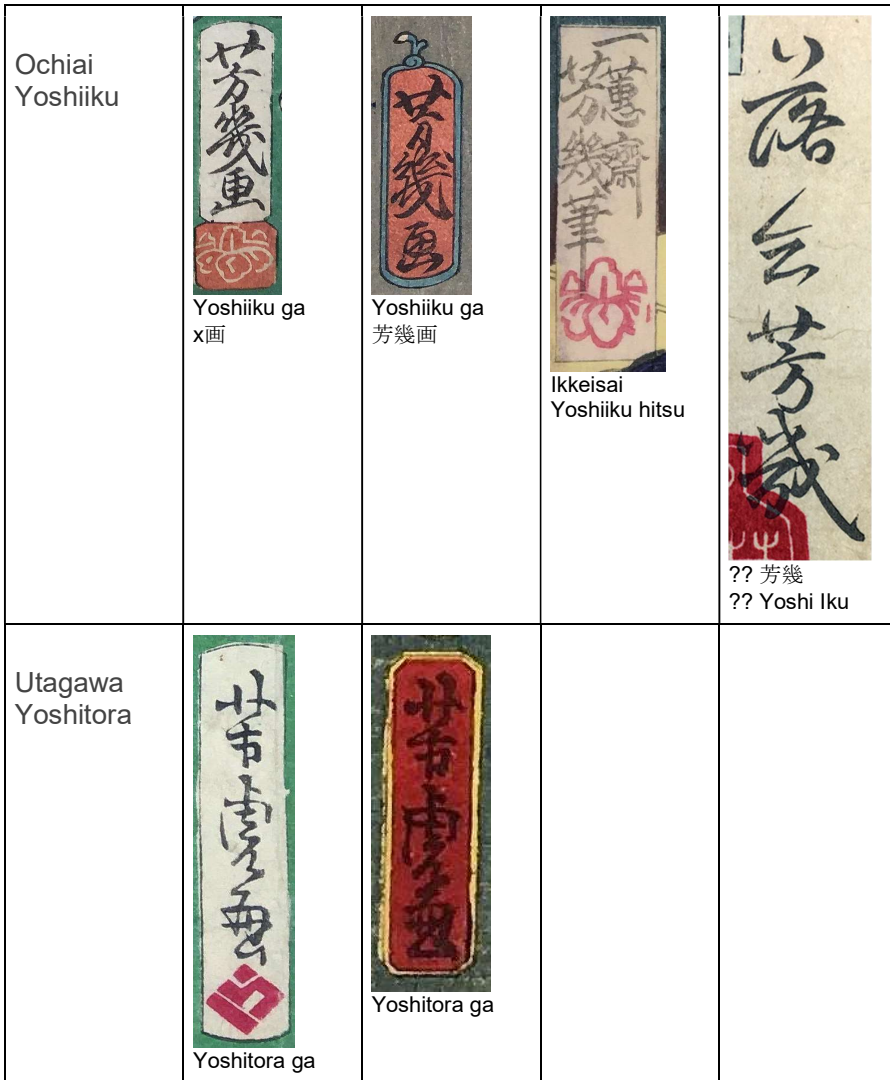 Ochiai
Yoshiiku
芳幾画
Yoshiiku ga
x画
芳幾画
Yoshiiku ga
芳幾画
一蕙齋
芳幾筆
Ikkeisai
Yoshiiku hitsu
落合芳幾
?? 芳幾
?? Yoshi Iku
Utagawa
Yoshitora
芳虎画
Yoshitora ga
芳虎画
Yoshitora ga